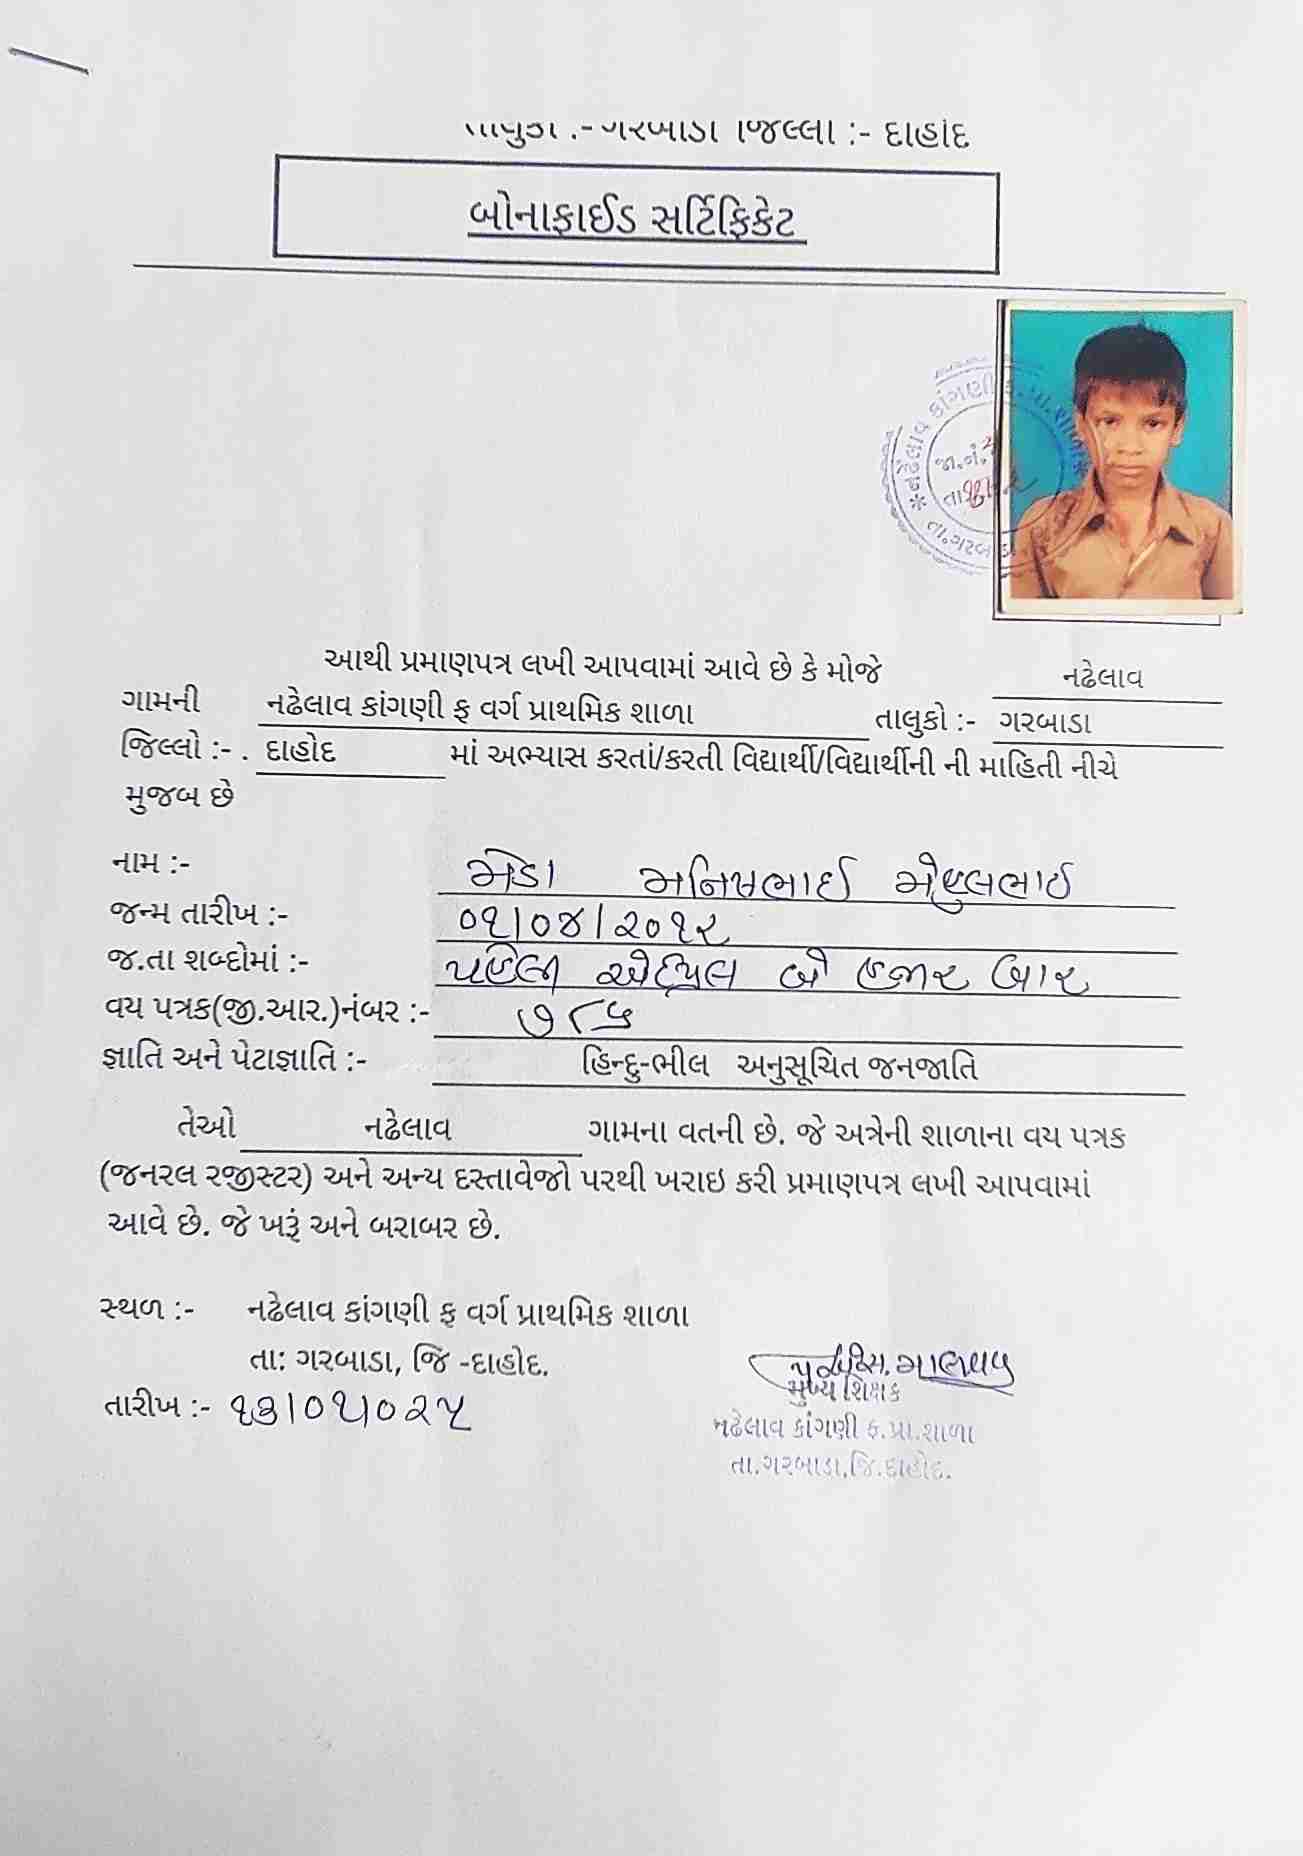 તાલુકો :- ગરબાડા જિલ્લા :- દાહોદ
બોનાફાઈડ સર્ટિફિકેટ
નઢેલાવ કાંગણી ફ. પ્રા. શાળા
જા.નં.
તા
તા.ગરબાડા
આથી પ્રમાણપત્ર લખી આપવામાં આવે છે કે મોજે નઢેલાવ
ગામની નઢેલાવ કાંગણી ફ વર્ગ પ્રાથમિક શાળા તાલુકો :- ગરબાડા
જિલ્લો :- . દાહોદ માં અભ્યાસ કરતાં/કરતી વિદ્યાર્થી/વિદ્યાર્થીની ની માહિતી નીચે
મુજબ છે
નામ :- મેડા મનિષભાઈ મેહુલભાઈ
જન્મ તારીખ :- ૦૧/૦૪/૨૦૧૨
જ.તા શબ્દોમાં :- પહેલી એપ્રિલ બે હજાર બાર
વય પત્રક(જી.આર.)નંબર :- ૭૮૫
જ્ઞાતિ અને પેટાજ્ઞાતિ :- હિન્દુ-ભીલ અનુસૂચિત જનજાતિ
તેઓ નઢેલાવ ગામના વતની છે. જે અત્રેની શાળાના વય પત્રક
(જનરલ રજીસ્ટર) અને અન્ય દસ્તાવેજો પરથી ખરાઇ કરી પ્રમાણપત્ર લખી આપવામાં
આવે છે. જે ખરૂં અને બરાબર છે.
સ્થળ :- નઢેલાવ કાંગણી ફ વર્ગ પ્રાથમિક શાળા
તા: ગરબાડા, જિ -દાહોદ.
મુખ્ય શિક્ષક
તારીખ :- ૧૩/૦૫/૦૨૫
નઢેલાવ કાંગણી ફ.પ્રા.શાળા
તા.ગરબાડા,જિ.દાહોદ.